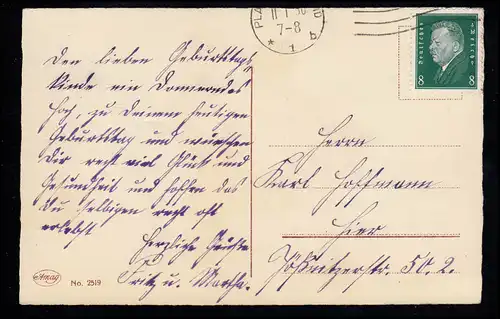 11.1.30
7-8
* 1 b
Deutsches Reich
8 8
Den lieben Geburtstags
kinde ein Donnerndes
Hoch, zu Deinem heutigen
Geburtstag und wünschen
Dir recht viel Glück und
Gesundheit und hoffen das
du selbigen recht oft
erlebst
Herzliche Grüße
Fritz u. Martha.
Herrn
Karl Hoffmann
Hier
Jößnitzerstr. 50. 2.
Amag
No. 2519